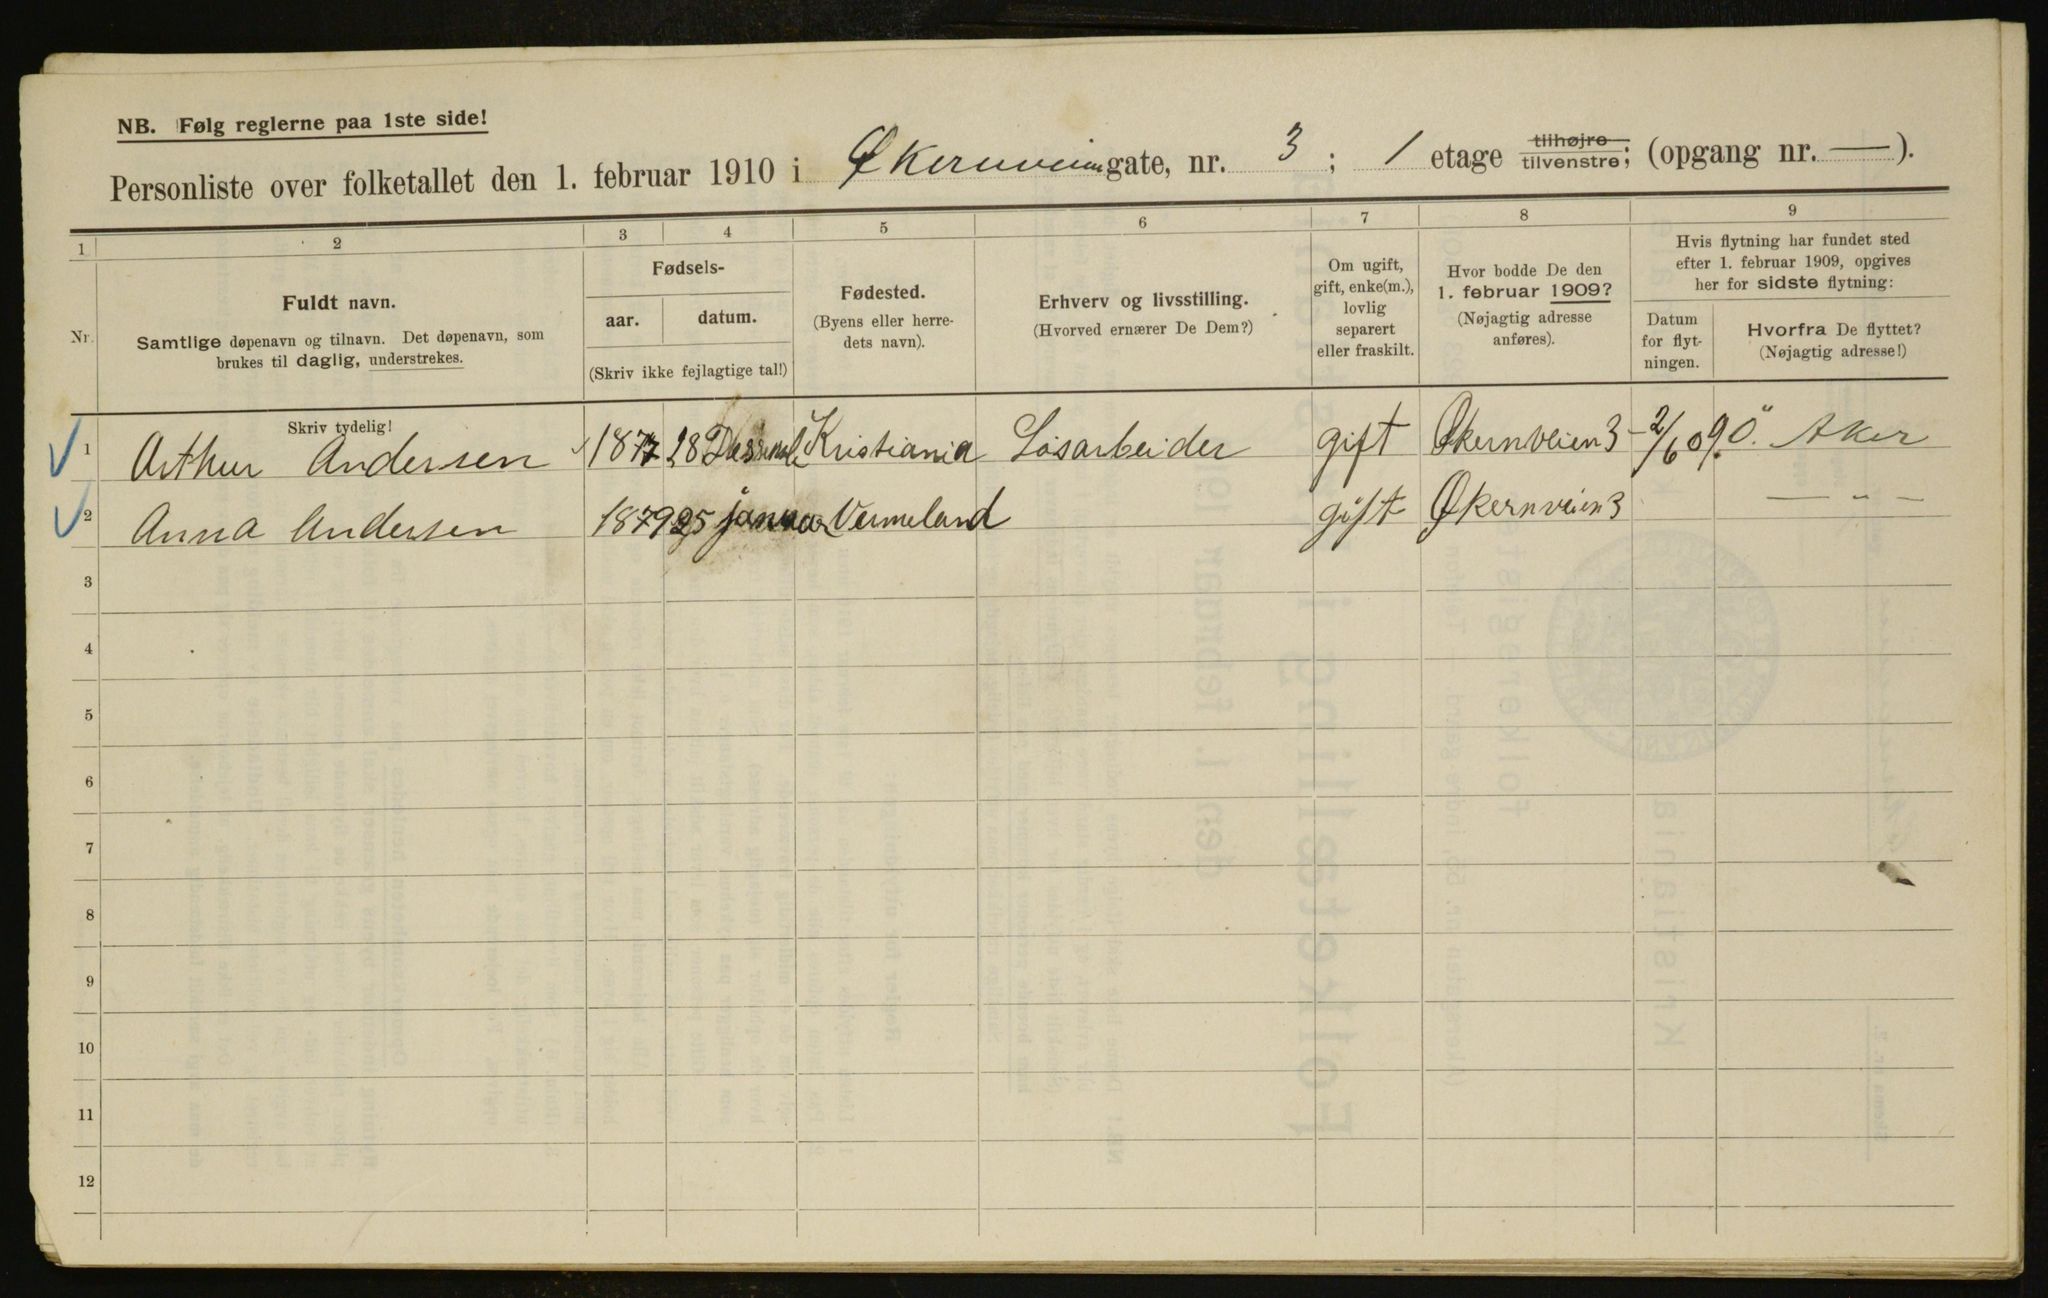 NB. Følg reglerne paa 1ste side!
Personliste over folketallet den 1. februar 1910 i Økernveien gate, nr. 3 ; 1 etage tilhøjre tilvenstre; (opgang nr. — ).
1 2 3 4 5 6 7 8 9
Nr. Fuldt navn. Samtlige døpenavn og tilnavn. Det døpenavn, som brukes til daglig, understrekes.
Fødsels-
aar. datum.
(Skriv ikke fejlagtige tal!)
Fødested. (Byens eller herredets navn).
Erhverv og livsstilling. (Hvorved ernærer De Dem?)
Om ugift, gift, enke(m.), lovlig separert eller fraskilt.
Hvor bodde De den 1. februar 1909? (Nøjagtig adresse anføres).
Hvis flytning har fundet sted efter 1. februar 1909, opgives her for sidste flytning:
Datum for flytningen.
Hvorfra De flyttet? (Nøjagtig adresse!)
Skriv tydelig!
1 Arthur Andersen 1877 28 Kristiania Løsarbeider gift Økernveien 3 - 2/6 09. Ö. Aker
2 Anna Andersen 1879 25 januar Vermeland gift Økernveien 3 — " —
3
4
5
6
7
8
9
10
11
12